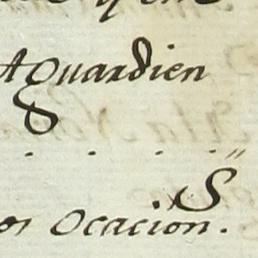 Aguardien
. . . . "
.S
os ocacion.